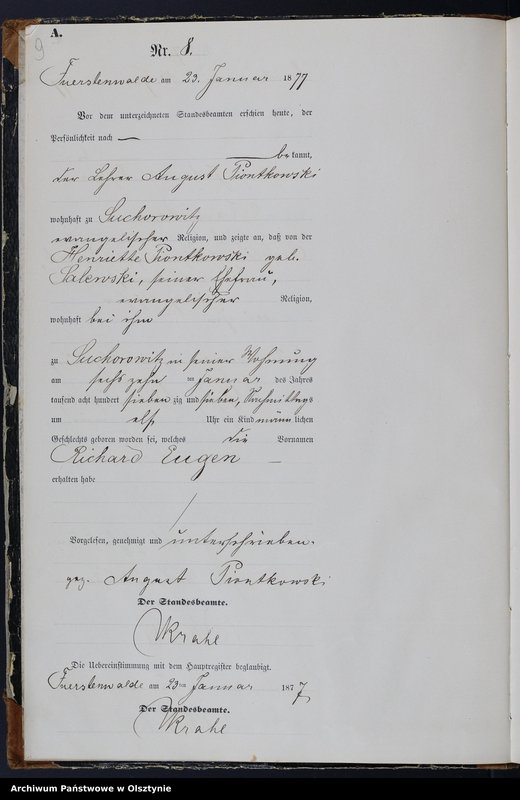 A.
9
Nr. 8.
Fuerstenwalde am 23. Januar 1877
Vor dem unterzeichneten Standesbeamten erschien heute, der
Persönlichkeit nach —
bekannt,
der Lehrer August Piontkowski
wohnhaft zu Suchorowitz
evangelischer Religion, und zeigte an, daß von der
Henriette Piontkowski geb.
Salewski, seiner Ehefrau,
evangelischer Religion,
wohnhaft bei ihm
zu Suchorowitz in seiner Wohnung
am sechs zehn ten Januar des Jahres
tausend acht hundert sieben zig und sieben, Nachmittags
um elf Uhr ein Kind männlichen
Geschlechts geboren worden sei, welches die Vornamen
Richard Eugen —
erhalten habe
Vorgelesen, genehmigt und unterschrieben.
gez. August Piontkowski
Der Standesbeamte.
Krahl
Die Uebereinstimmung mit dem Hauptregister beglaubigt.
Fuerstenwalde am 23ten Januar 1877
Der Standesbeamte.
Krahl
Archiwum Państwowe w Olsztynie